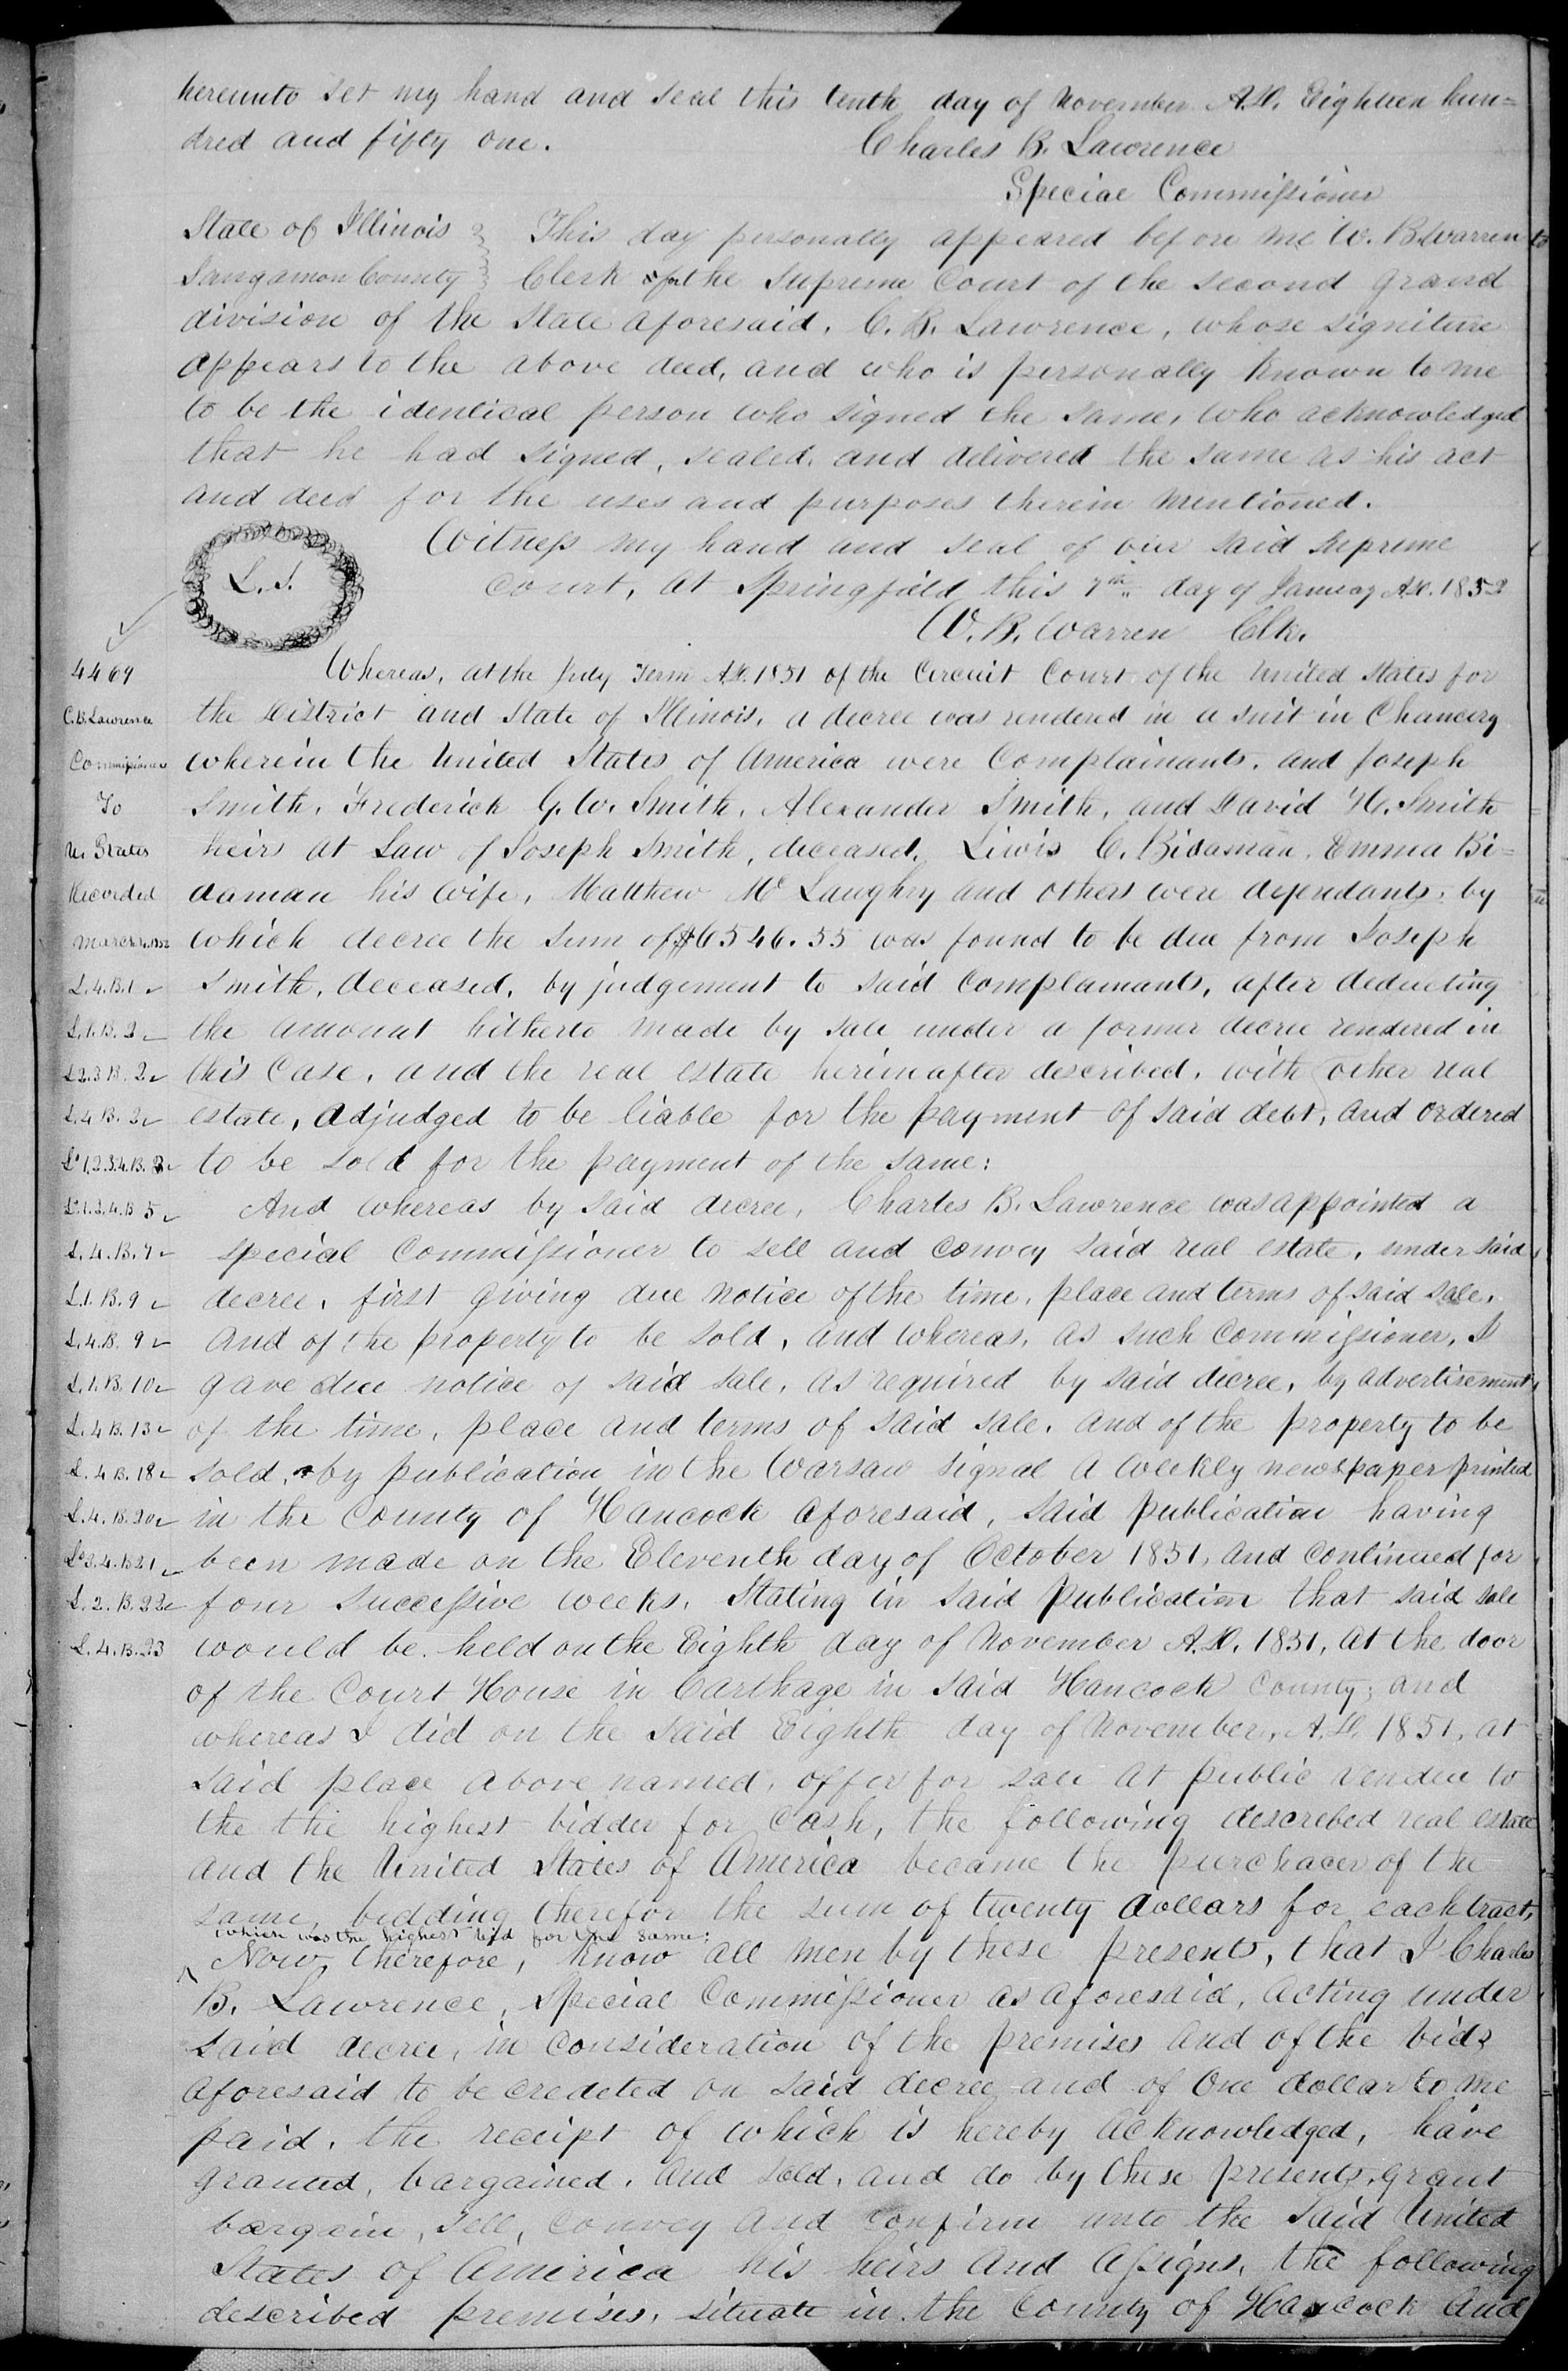 hereunto set my hand and seal this tenth day of November A.D. Eighteen hun=
dred and fifty one. Charles B. Lawrence
Special Commissioner
State of Illinois } This day personally appeared before me W. B. Warren
Sangamon County } Clerk of the Supreme Court of the second grand
division of the State aforesaid, C. B. Lawrence, whose signiture
appears to the above deed, and who is personally known to me
to be the identical person who signed the same, who acknowledged
that he had signed, sealed, and delivered the same as his act
and deed for the uses and purposes therein mentioned.
Witness my hand and seal of our said Supreme
L.S. Court, at Springfield this 7th day of January A.D. 1852
W. B. Warren Clk.
4469 Whereas, at the July Term A.D. 1851 of the Circuit Court of the United States for
C.B. Lawrence the District and State of Illinois, a decree was rendered in a suit in Chancery
Commissioner wherein the United States of America were Complainants, and Joseph
To Smith, Frederick G. W. Smith, Alexander Smith, and David H. Smith
U. States heirs at Law of Joseph Smith, deceased, Liwis C. Bidaman, Emma Bi=
Recorded daman his wife, Matthew Mc Laughry and others were defendants, by
which decree the sum of $6546.55 was found to be due from Joseph
L.4.B.1 Smith, deceased, by judgement to said Complainants, after deducting
L.1.B.2 the amount hitherto made by sale under a former decree rendered in
L.2.3.B.2 this Case, and the real estate hereinafter described, with other real
L.4.B.2 estate, adjudged to be liable for the payment of said debt, and ordered
Ls 1,2,3,4.B. to be sold for the payment of the same:
B 5 And whereas by said decree, Charles B. Lawrence was appointed a
L.4.B.7 special Commissioner to sell and convey said real estate, under said
L.1.B.9 decree, first giving due notice of the time, place and terms of said sale,
L.4.B.9 and of the property to be sold, and whereas, as such Commissioner, I
L.1.B.10 gave due notice of said sale, as required by said decree, by advertisement
L.4.B.13 of the time, place and terms of said sale, and of the property to be
L.4.B.18 sold, by publication in the Warsaw Signal a weekly newspaper printed
L.4.B.20 in the County of Hancock aforesaid, said publication having
Ls 3.4.B21 been made on the Eleventh day of October 1851, and continued for
L.2.B.22 four successive weeks, stating in said publication that said sale
L.4.B.23 would be held on the Eighth day of November A.D. 1851, at the door
of the Court House in Carthage in said Hancock County; and
whereas I did on the said Eighth day of November, A.D. 1851, at
said place above named, offer for sale at public vendue to
the the highest bidder for Cash, the following described real estate
and the United States of America became the purchacer of the
same, bidding therefor the sum of twenty dollars for each tract,
which was the highest bid for the same:
Now, therefore, know all men by these presents, that I Charles
B. Lawrence, Special Commissioner as aforesaid, acting under
said decree, in consideration of the premises and of the bids
aforesaid to be credeted on said decree and of One dollar to me
paid, the receipt of which is hereby acknowledged, have
granted, bargained, and sold, and do by these presents, grant
bargain, sell, convey and confirm unto the said United
States of America his heirs and assigns, the following
described premises, situate in the County of Hancock and